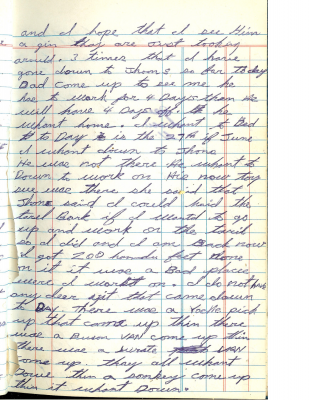 and I hope that I see Him
a gin they are out tooking
around. 3 times that I have
gone down to Jhon's so far to day
Dad come up to see me he
has to work for 4 Days than He
will have 4 Days off. he
whent home. I whent to Bed
to Day is the 27th of June
I whent down to Jhons
He was not there He whent to
Down to work on His now toy
sue was there she said that
Jhons said I could haid the
taril Back if I wanted to go
up and work on the taril
so I did and I am Back now
I got 200 hondu feet done
on it it was a Bad place
were I workt on. I do not have
any deer yet that came down
to Day. there was a Yoelle pick
up that came up thin there
was a Brown VAN come up thin
there was a VAN
come up. thay all whant
Down thin a come up
thin it whant Down.